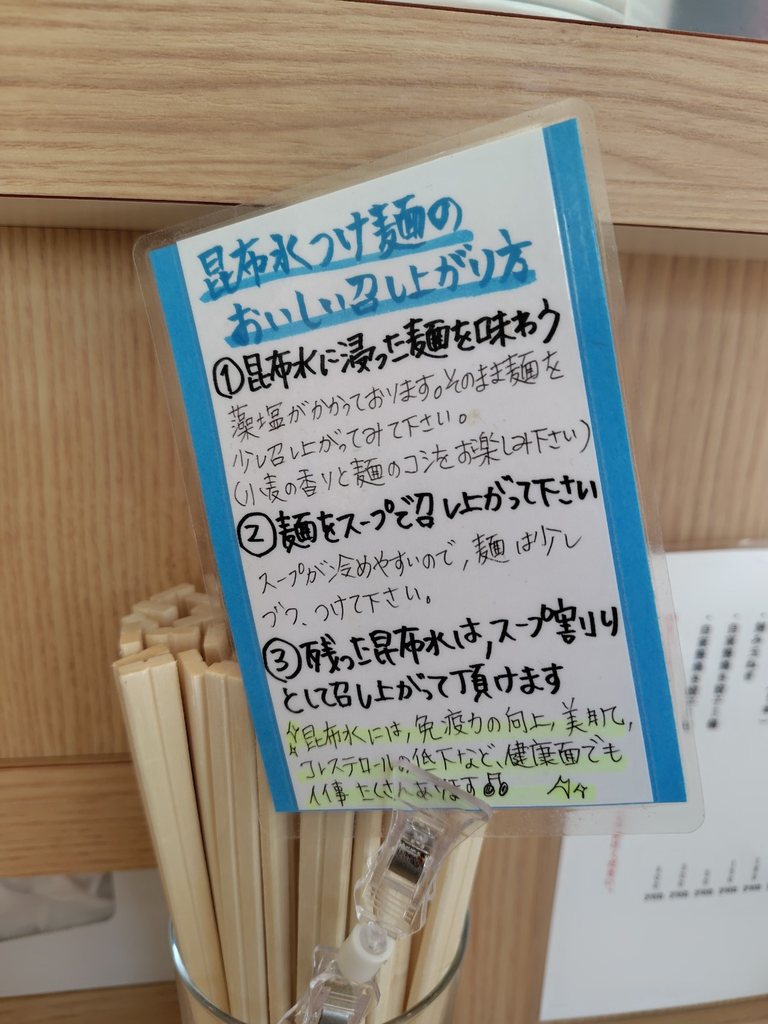 昆布水つけ麺の
おいしい召し上がり方
①昆布水に浸った麺を味わう
藻塩がかかっております。そのまま麺を
少し召し上がってみて下さい。
(小麦の香りと麺のコシをお楽しみ下さい)
②麺をスープで召し上がって下さい
スープが冷めやすいので,麺は少し
づつ、つけて下さい。
③残った昆布水は,スープ割り
として召し上がって頂けます
☆昆布水には,免疫力の向上,美肌,
コレステロールの低下など、健康面でも
イイ事たくさんあります♫ ☆☆